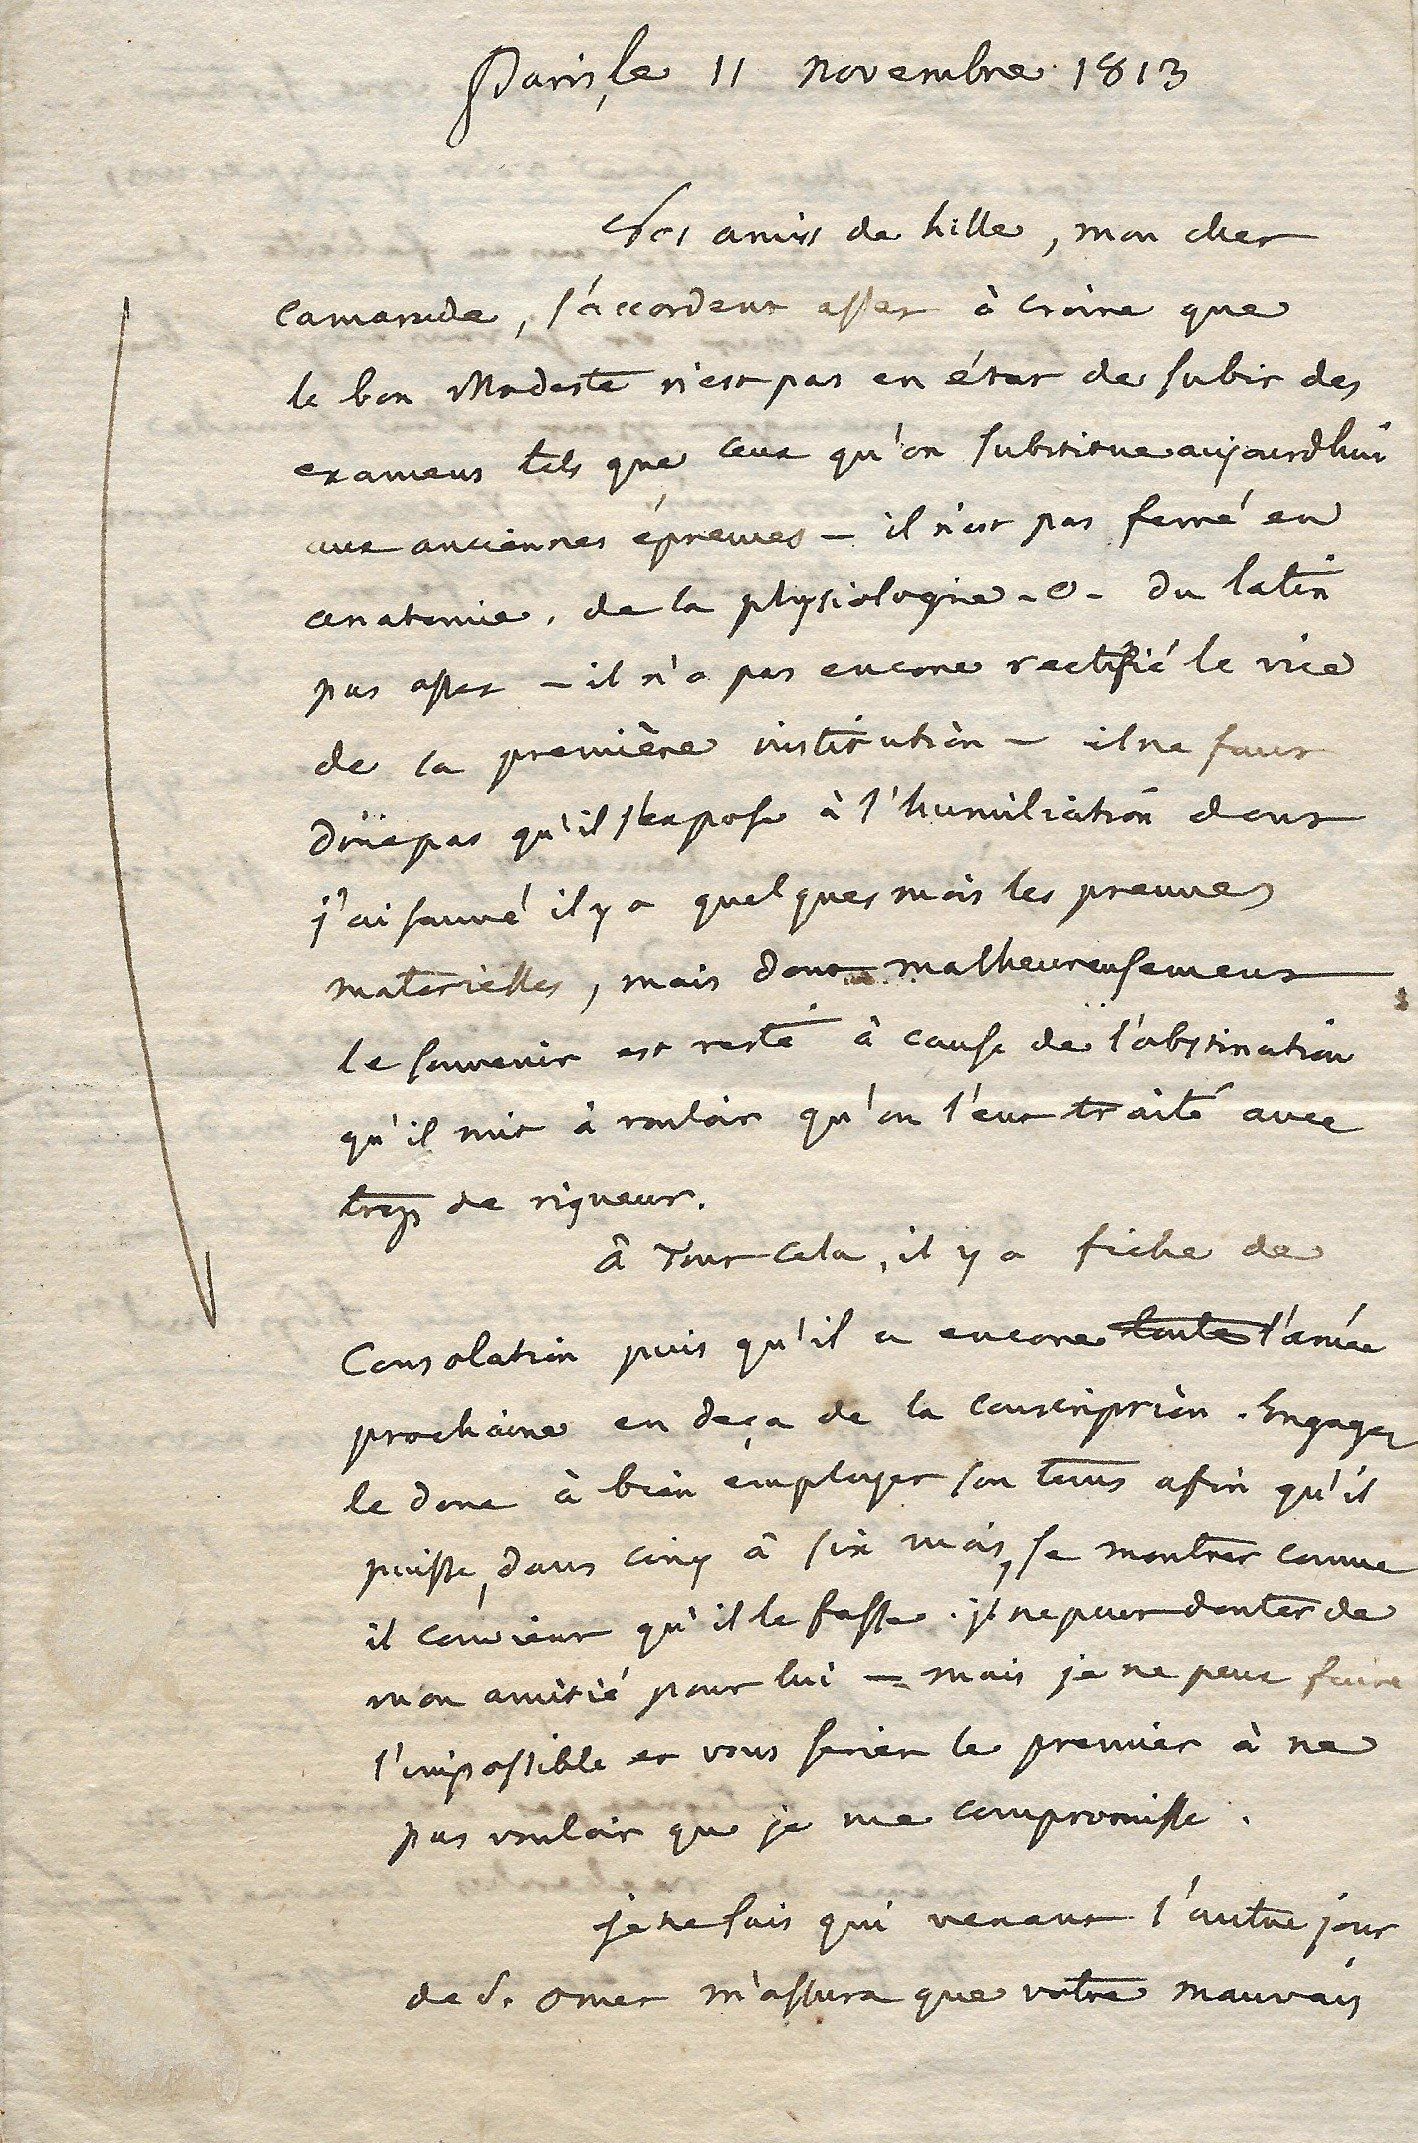 Paris, le 11 novembre 1813
Nos amis de Lille, mon cher
camarade, s'accordent assez à croire que
le bon Modeste n'est pas en état de subir des
examens tels que ceux qu'on substitue aujourdhui
aux anciennes épreuves – il n'est pas ferré en
anatomie, de la physiologie - o - du latin
pas assez – il n'a pas encore rectifié le vice
de la première institution – il ne faut
donc pas qu'il s'expose à l'humiliation dont
j'ai sauvé il y a quelques mois les preuves
materielles, mais dont malheureusement
le souvenir est resté à cause de l'obstination
qu'il mit à vouloir qu'on l'eut traité avec
trop de rigueur.
à tout cela, il y a fiche de
Consolation puis qu'il a encore toute l'année
prochaine en deça de la conscription. Engagez
le donc à bien employer son tems afin qu'il
puisse, dans cinq à six mois, se montrer comme
il convient qu'il le fasse. il ne peut douter de
mon amitié pour lui – mais je ne peux faire
l'impossible et vous seriez le premier à ne
pas vouloir que je me compromisse.
je ne sais qui venant l'autre jour
de S. Omer m'assura que votre mauvais